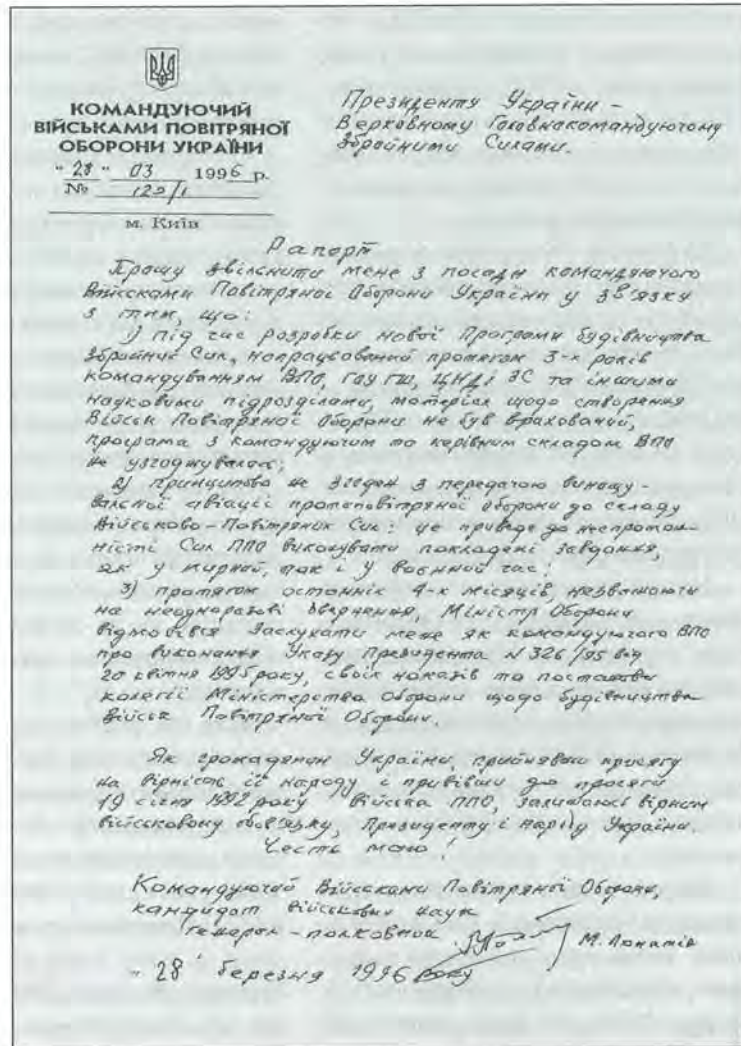 КОМАНДУЮЧИЙ
ВІЙСЬКАМИ ПОВІТРЯНОЇ
ОБОРОНИ УКРАЇНИ
"28" 03 1996 р.
№ 122/1
м. Київ
Президенту України –
Верховному Головнокомандуючому
Збройними Силами.
Рапорт
Прошу звільнити мене з посади командуючого
Військами Повітряної Оборони України у зв'язку
з тим, що:
1) під час розробки нової Програми будівництва
Збройних Сил, напрацьований протягом 3-х років
командуванням ВПО, ГОУ ГШ, ЦНДІ ЗС та іншими
науковими підрозділами, матеріал щодо створення
Військ Повітряної Оборони не був врахований,
програма з командуючим та керівним складом ВПО
не узгоджувалась;
2) принципово не згоден з передачою винищу-
вальної авіації протиповітряної оборони до складу
Військово-Повітряних Сил: це приведе до неспромож-
ністі Сил ППО виконувати покладені завдання,
як у мирний, так і у воєнний час;
3) протягом останніх 4-х місяців, незважаючи
на неодноразові звернення, Міністр Оборони
відмовився заслухати мене як командуючого ВПО
про виконання Указу Президента N 326/95 від
20 квітня 1995 року, своїх наказів та постанови
колегії Міністерства Оборони щодо будівництва
Військ Повітряної Оборони.
Як громадянин України, прийнявши присягу
на вірність її народу і привівши до присяги
19 січня 1992 року Війська ППО, залишаюсь вірним
військовому обов'язку, Президенту і народу України.
Честь маю!
Командуючий Військами Повітряної Оборони,
кандидат військових наук
генерал-полковник М. Лопатін
"28" березня 1996 року